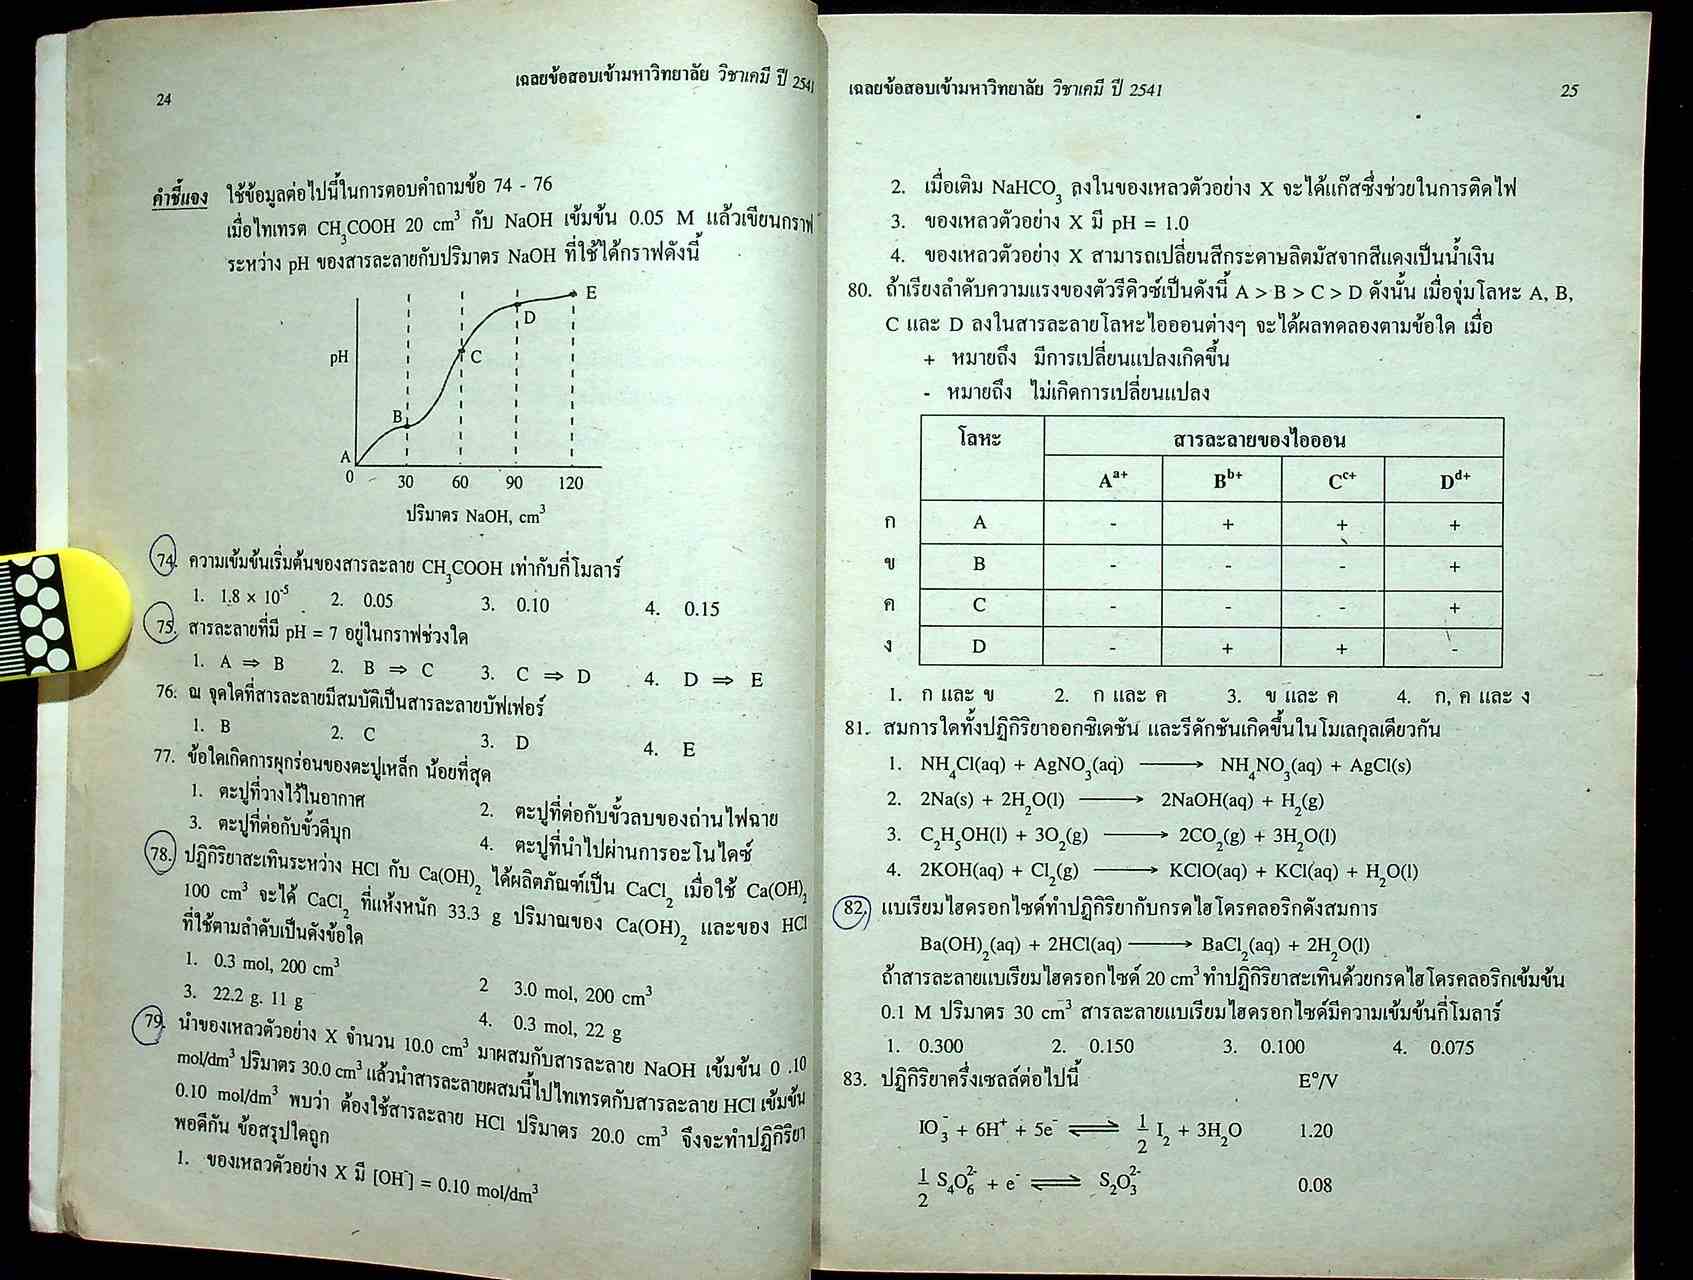 24
เฉลยข้อสอบเข้ามหาวิทยาลัย วิชาเคมี ปี 2541
คำชี้แจง ใช้ข้อมูลต่อไปนี้ในการตอบคำถามข้อ 74 - 76
เมื่อไทเทรต CH₃COOH 20 cm³ กับ NaOH เข้มข้น 0.05 M แล้วเขียนกราฟ
ระหว่าง pH ของสารละลายกับปริมาตร NaOH ที่ใช้ได้กราฟดังนี้
E
D
pH
C
B
A
0 30 60 90 120
ปริมาตร NaOH, cm³
74. ความเข้มข้นเริ่มต้นของสารละลาย CH₃COOH เท่ากับกี่โมลาร์
1. 1.8 × 10⁻⁵ 2. 0.05 3. 0.10 4. 0.15
75. สารละลายที่มี pH = 7 อยู่ในกราฟช่วงใด
1. A ⇒ B 2. B ⇒ C 3. C ⇒ D 4. D ⇒ E
76. ณ จุดใดที่สารละลายมีสมบัติเป็นสารละลายบัฟเฟอร์
1. B 2. C 3. D 4. E
77. ข้อใดเกิดการผุกร่อนของตะปูเหล็ก น้อยที่สุด
1. ตะปูที่วางไว้ในอากาศ 2. ตะปูที่ต่อกับขั้วลบของถ่านไฟฉาย
3. ตะปูที่ต่อกับขั้วดีบุก 4. ตะปูที่นำไปผ่านการอะโนไดซ์
78. ปฏิกิริยาสะเทินระหว่าง HCl กับ Ca(OH)₂ ได้ผลิตภัณฑ์เป็น CaCl₂ เมื่อใช้ Ca(OH)₂
100 cm³ จะได้ CaCl₂ ที่แห้งหนัก 33.3 g ปริมาณของ Ca(OH)₂ และของ HCl
ที่ใช้ตามลำดับเป็นดังข้อใด
1. 0.3 mol, 200 cm³ 2 3.0 mol, 200 cm³
3. 22.2 g. 11 g 4. 0.3 mol, 22 g
79. นำของเหลวตัวอย่าง X จำนวน 10.0 cm³ มาผสมกับสารละลาย NaOH เข้มข้น 0 .10
mol/dm³ ปริมาตร 30.0 cm³ แล้วนำสารละลายผสมนี้ไปไทเทรตกับสารละลาย HCl เข้มข้น
0.10 mol/dm³ พบว่า ต้องใช้สารละลาย HCl ปริมาตร 20.0 cm³ จึงจะทำปฏิกิริยา
พอดีกัน ข้อสรุปใดถูก
1. ของเหลวตัวอย่าง X มี [OH⁻] = 0.10 mol/dm³
เฉลยข้อสอบเข้ามหาวิทยาลัย วิชาเคมี ปี 2541
25
2. เมื่อเติม NaHCO₃ ลงในของเหลวตัวอย่าง X จะได้แก๊สซึ่งช่วยในการติดไฟ
3. ของเหลวตัวอย่าง X มี pH = 1.0
4. ของเหลวตัวอย่าง X สามารถเปลี่ยนสีกระดาษลิตมัสจากสีแดงเป็นน้ำเงิน
80. ถ้าเรียงลำดับความแรงของตัวรีดิวซ์เป็นดังนี้ A > B > C > D ดังนั้น เมื่อจุ่มโลหะ A, B,
C และ D ลงในสารละลายโลหะไอออนต่างๆ จะได้ผลทดลองตามข้อใด เมื่อ
+ หมายถึง มีการเปลี่ยนแปลงเกิดขึ้น
- หมายถึง ไม่เกิดการเปลี่ยนแปลง
โลหะ สารละลายของไอออน
Aᵃ⁺ Bᵇ⁺ Cᶜ⁺ Dᵈ⁺
ก A - + + +
ข B - - - +
ค C - - - +
ง D - + + -
1. ก และ ข 2. ก และ ค 3. ข และ ค 4. ก, ค และ ง
81. สมการใดทั้งปฏิกิริยาออกซิเดชัน และรีดักชันเกิดขึ้นในโมเลกุลเดียวกัน
1. NH₄Cl(aq) + AgNO₃(aq) ⟶ NH₄NO₃(aq) + AgCl(s)
2. 2Na(s) + 2H₂O(l) ⟶ 2NaOH(aq) + H₂(g)
3. C₂H₅OH(l) + 3O₂(g) ⟶ 2CO₂(g) + 3H₂O(l)
4. 2KOH(aq) + Cl₂(g) ⟶ KClO(aq) + KCl(aq) + H₂O(l)
82. แบเรียมไฮดรอกไซด์ทำปฏิกิริยากับกรดไฮโดรคลอริกดังสมการ
Ba(OH)₂(aq) + 2HCl(aq) ⟶ BaCl₂(aq) + 2H₂O(l)
ถ้าสารละลายแบเรียมไฮดรอกไซด์ 20 cm³ ทำปฏิกิริยาสะเทินด้วยกรดไฮโดรคลอริกเข้มข้น
0.1 M ปริมาตร 30 cm³ สารละลายแบเรียมไฮดรอกไซด์มีความเข้มข้นกี่โมลาร์
1. 0.300 2. 0.150 3. 0.100 4. 0.075
83. ปฏิกิริยาครึ่งเซลล์ต่อไปนี้ E°/V
IO₃⁻ + 6H⁺ + 5e⁻ ⇌ 1/2 I₂ + 3H₂O 1.20
1/2 S₄O₆²⁻ + e⁻ ⇌ S₂O₃²⁻ 0.08